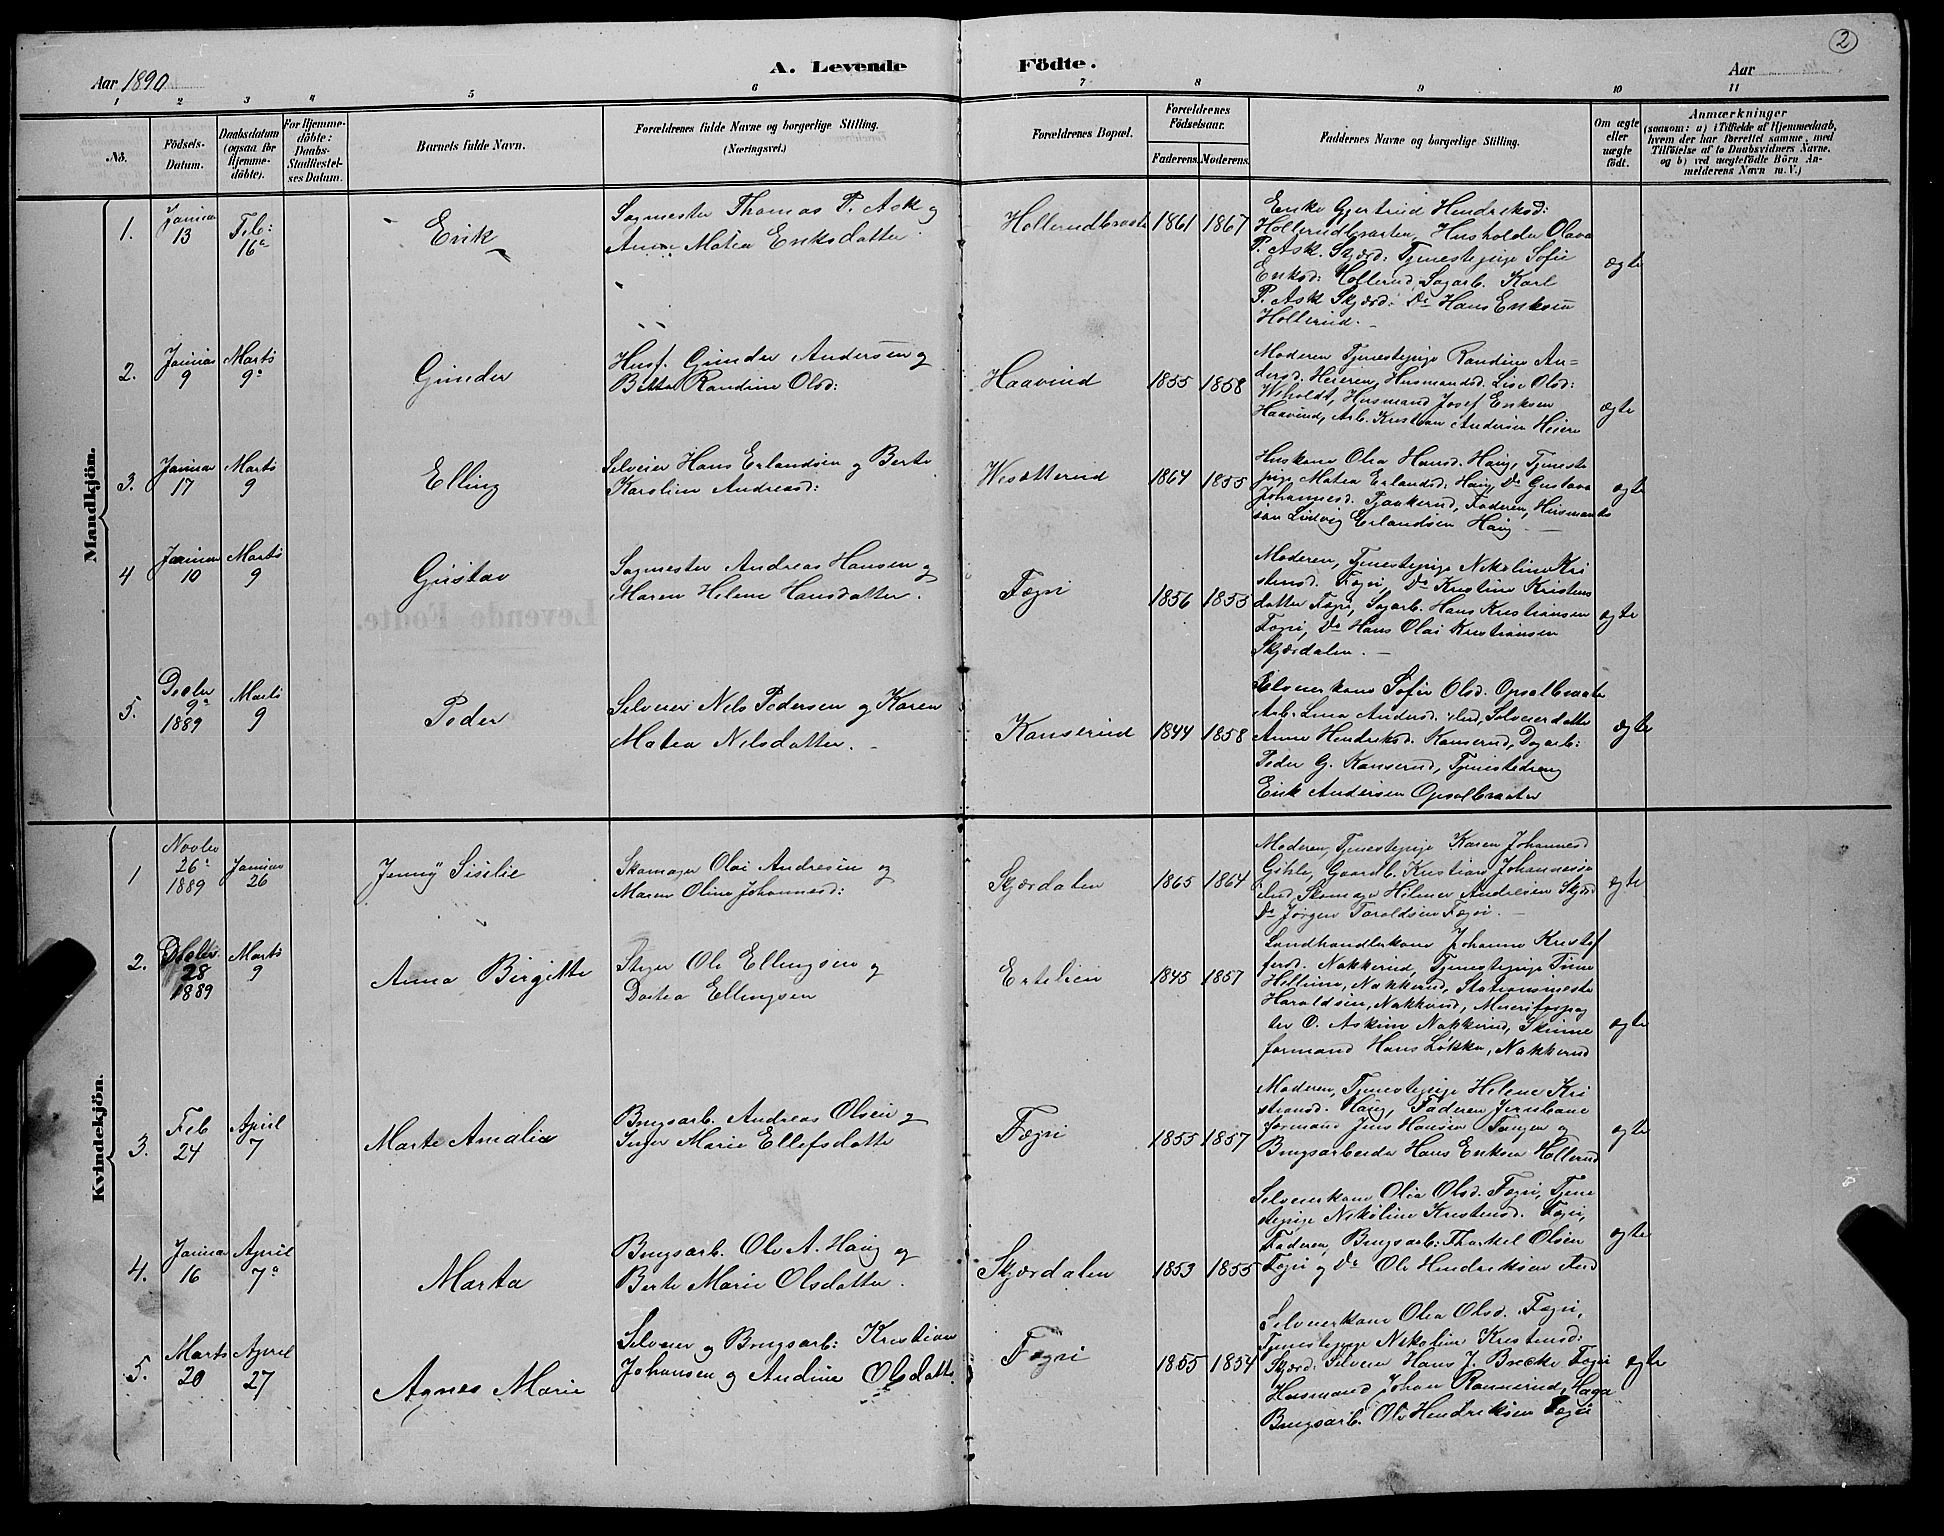 2
Aar 1890
A. Levende Födte.
Aar
1 2 3 4 5 6 7 8 9 10 11
No.
Födsels-
Datum.
Daabsdatum
(ogsaa for
Hjemme-
döbte).
For Hjemme-
döbte:
Daabs-
Stadfæstel-
ses Datum.
Barnets fulde Navn.
Forældrenes fulde Navne og borgerlige Stilling.
(Næringsvei.)
Forældrenes Bopæl.
Forældrenes
Födselsaar.
Faderens. Moderens.
Faddernes Navne og borgerlige Stilling.
Om ægte
eller
uægte
födt.
Anmærkninger
(saasom: a) i Tilfælde af Hjemmedaab,
hvem der har forrettet samme, med
Tilföielse af to Daabsvidners Navne,
og b) ved uægtefödte Börn An-
melderens Navn m. V.)
Mandkjön.
1.
Januar
13
Feb:
16de
Erik
Sagmester Thomas P. Ask og
Anne Matea Eriksdatter.
1861 1867
Enke Gjertrud Hendriksd:
Hollerudbraaten, Husholder Olava
P. Ask. Skjærd: Tjenestepige Sofie
Eriksd: Hollerud, Sagarb. Karl
P. Ask Skjærd: Do Hans Eriksen
Hollerud.
ægte
2.
Januar
9
Marts
9
Gunder
Husf. Gunder Andersen og
Randine Olsd:
Haavind
1855 1858
Moderen Tjenestepige Randine An-
dersd. Heieren, Husmandsd. Lise Olsd:
Weholdt, Husmand Josef Eriksen
Haavind, Arb. Kristian Andersen Heiere
ægte
3.
Januar
17
Marts
9
Elling
Selveier Hans Erlandsen og Berte
Karoline Andreasd:
Wesætterud
1864 1855
Huskone Olea Hansd. Haug, Tjeneste
pige Matea Erlandsd. Haug, Do Gustava
Johannesd. Fjaakerud, Faderen, Husmands
søn Ludvig Erlandsen Haug
ægte
4
Januar
10
Marts
9
Gustav
Sagmester Andreas Hansen og
Maren Helene Hansdatter.
Fægri
1856 1853
Moderen, Tjenestepige Nikoline Kri
stensd. Fægri, Do Kristine Kristens
datter Fægri, Sagarb. Hans Kristiansen
Fægri, Do Hans Olai Kristiansen
Skjærdalen.
ægte
5.
Decbr
9
1889
Marts
9
Peder
Selveier Nils Pedersen og Karen
Matea Nilsdatter.
Kanserud
1844 1858
Selveierkone Sofie Olsd. Opsalbraaten
Arb. Lina Andersd. ibid, Selveierdatter
Anne Hendriksd. Kanserud, Dagarb:
Peder G. Kanserud, Tjenestedreng
Erik Andersen Opsalbraaten
ægte
Kvindekjön.
1
Novbr
26
1889
Januar
26
Jenny Sisilie
Skomager Olai Andresen og
Maren Oline Johannesd:
Skjærdalen
1865 1864
Moderen, Tjenestepige Karen Johannesd
Gihle, Gaardb. Kristian Johannessen
ibid, Skomager Hilmar Andresen Skjærd
Do Jørgen Taraldsen Fægri.
ægte
2.
Decbr.
28
1889
Marts
9
Anna Birgitte
Ole Ellingsen og
Dortea Ellingsen
Ertelien
1845 1857
Landhandlerkone Johanne Kristof
fersd. Nakkerud, Tjenestepige Tine
Hellum, Nakkerud, Stationsmester
Haraldsen, Nakkerud, Meieriforpag
ter O. Askim Nakkerud, Skinne
formand Hans Løkka, Nakkerud
ægte
3.
Feb
24
April
7
Marte Amalie
Brugsarb. Andreas Olsen og
Inger Marie Ellefsdatter
Fægri
1855 1857
Moderen, Tjenestepige Helene Kri
stiansd. Haug, Faderen Jernbane
formand Jens Hansen Tanger og
Brugsarbeider Hans Eriksen Hollerud
ægte
4.
Januar
16
April
7
Marta
Brugsarb. Ole A. Haug og
Berte Marie Olsdatter.
Skjærdalen
1853 1855
Selveierkone Olea Olsd. Fægri, Tjene
stepige Nikoline Kristensd. Fægri,
Faderen, Brugsarb: Thorkel Olsen
Fægri og Do Ole Hendriksen ibid
ægte
5.
Marts
20
April
27
Agnes Marie
Selveier og Brugsarb: Kristian
Johansen og Andine Olsdatter
Fægri
1855 1854
Selveierkone Olea Olsd. Fægri,
Tjenestepige Nikoline Kristensd:
Skjærd. Selveier Hans J. Bræke Fægri
Husmand Johan Rannerud, Haga
Brugsarb. Ole Hendriksen Fægri
ægte